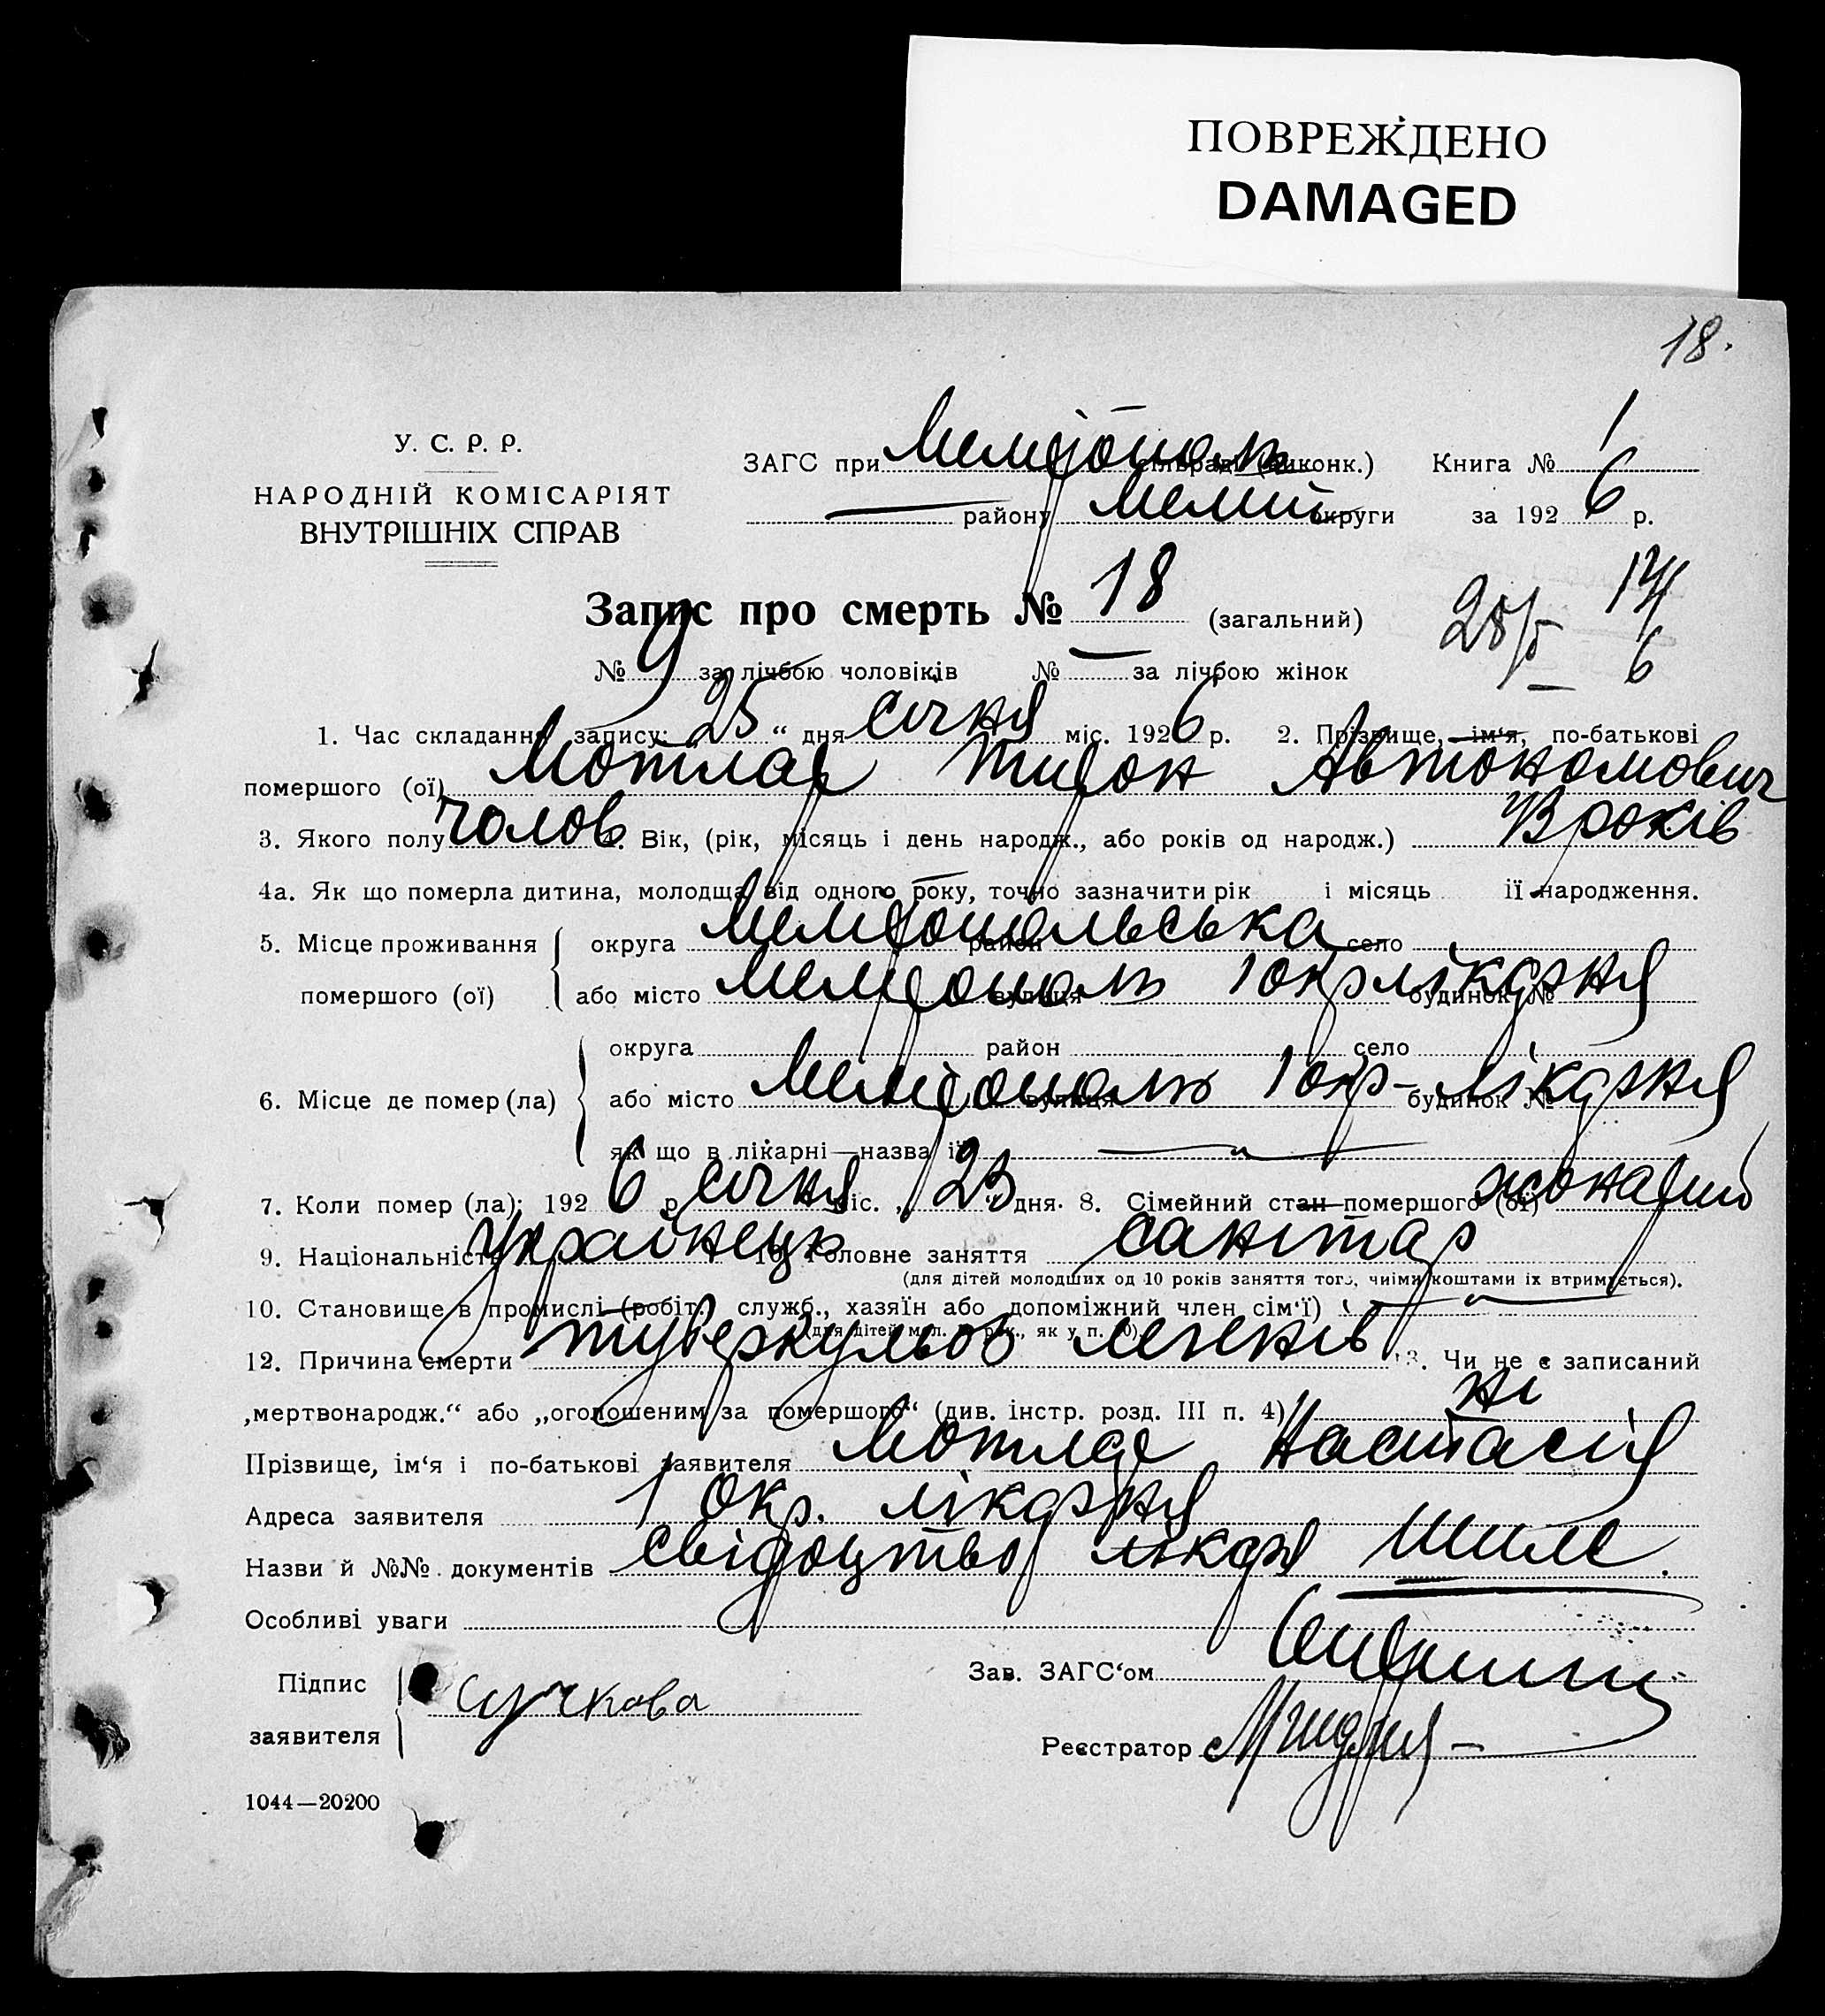 ПОВРЕЖДЕНО
DAMAGED
18.
У. С. Р. Р.
НАРОДНІЙ КОМІСАРІЯТ
ВНУТРІШНІХ СПРАВ
ЗАГС при Мелітополь сільраді (виконк.) Книга № 1
— району Меліт округи за 1926 р.
Запис про смерть № 18 (загальний)
№ 9 за лічбою чоловіків № — за лічбою жінок
1. Час складання запису: 25 “ дня січня міс. 1926 р. 2. Прізвище, ім‘я, по-батькові
помершого (ої) Мотляр Тирон Автономович
3. Якого полу чолов 4. Вік, (рік, місяць і день народж., або років од народж.) років
4а. Як що померла дитина, молодща від одного року, точно зазначити рік і місяць її народження.
5. Місце проживання округа Мелітопольська район село
помершого (ої) або місто Мелітополь вулиця 1 окр лікарня будинок №
округа район село
6. Місце де помер (ла) або місто Мелітополь вулиця 1 окр- лікарня будинок №
як що в лікарні—назва її — „ —
7. Коли помер (ла): 1926 р. січня міс. „ 23 “ дня. 8. Сімейний стан помершого (ої) жонатий
9. Національність Українець 10. Головне заняття санітар
(для дітей молодших од 10 років заняття того, чиїми коштами їх втримується).
10. Становище в промислі (робіт., служб., хазяїн або допоміжний член сім‘ї) — „ —
(для дітей мол. 10 рок., як у п. 10).
12. Причина смерти туберкульоз легенів 13. Чи не є записаний
„мертвонародж.“ або „оголошеним за помершого“ (див. інстр. розд. III п. 4) ні
Прізвище, ім‘я і по-батькові заявителя Мотляр Настасія
Адреса заявителя 1 окр. лікарня
Назви й №№ документів свідоцтво лікаря
Особливі уваги
Підпис
заявителя Сучкова
Зав. ЗАГС‘ом
Реєстратор
1044—20200